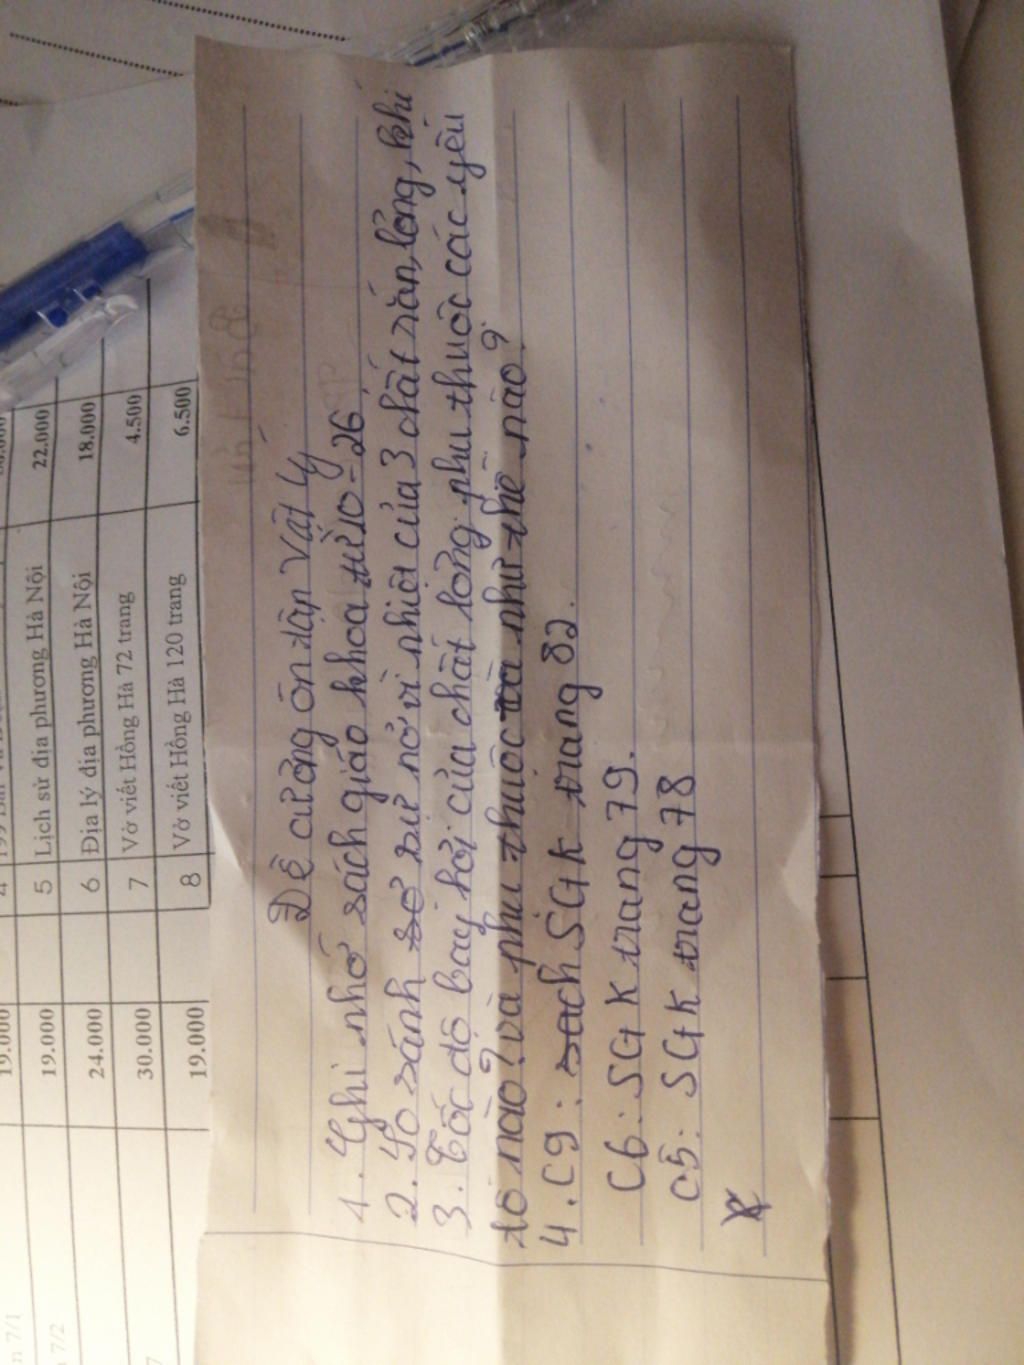 Đề cương ôn tập Vật lý
1. Ghi nhớ sách giáo khoa từ 10-26
2. So sánh sơ sự nở vì nhiệt của 3 chất rắn, lỏng, khí
3. Tốc độ bay hơi của chất lỏng phụ thuộc các yếu
tố nào? và phụ thuộc và như thế nào?
4. C9: sach SGK trang 82.
C6: SGK trang 79.
C5: SGK trang 78
19.000
19.000 5 Lịch sử địa phương Hà Nội 22.000
24.000 6 Địa lý địa phương Hà Nội 18.000
30.000 7 Vở viết Hồng Hà 72 trang 4.500
19.000 8 Vở viết Hồng Hà 120 trang 6.500
7/1
7/2